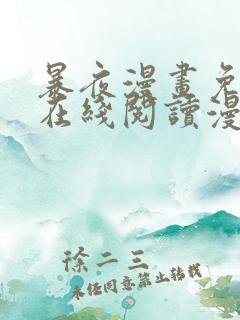 暴夜漫畫免
在綫閱讀漫
徐二三
未经同意禁止转载